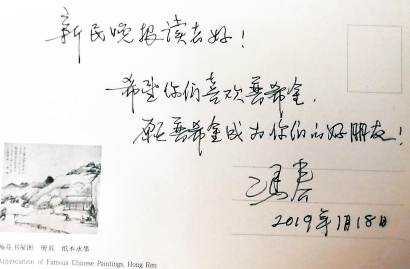 新民晚报读者好！
希望你们喜欢普希金，
愿普希金成为你们的好朋友！
冯春
2019年1月18日
梅花书屋图 册页 纸本水墨
Appreciation of Famous Chinese Paintings, Hong Ren